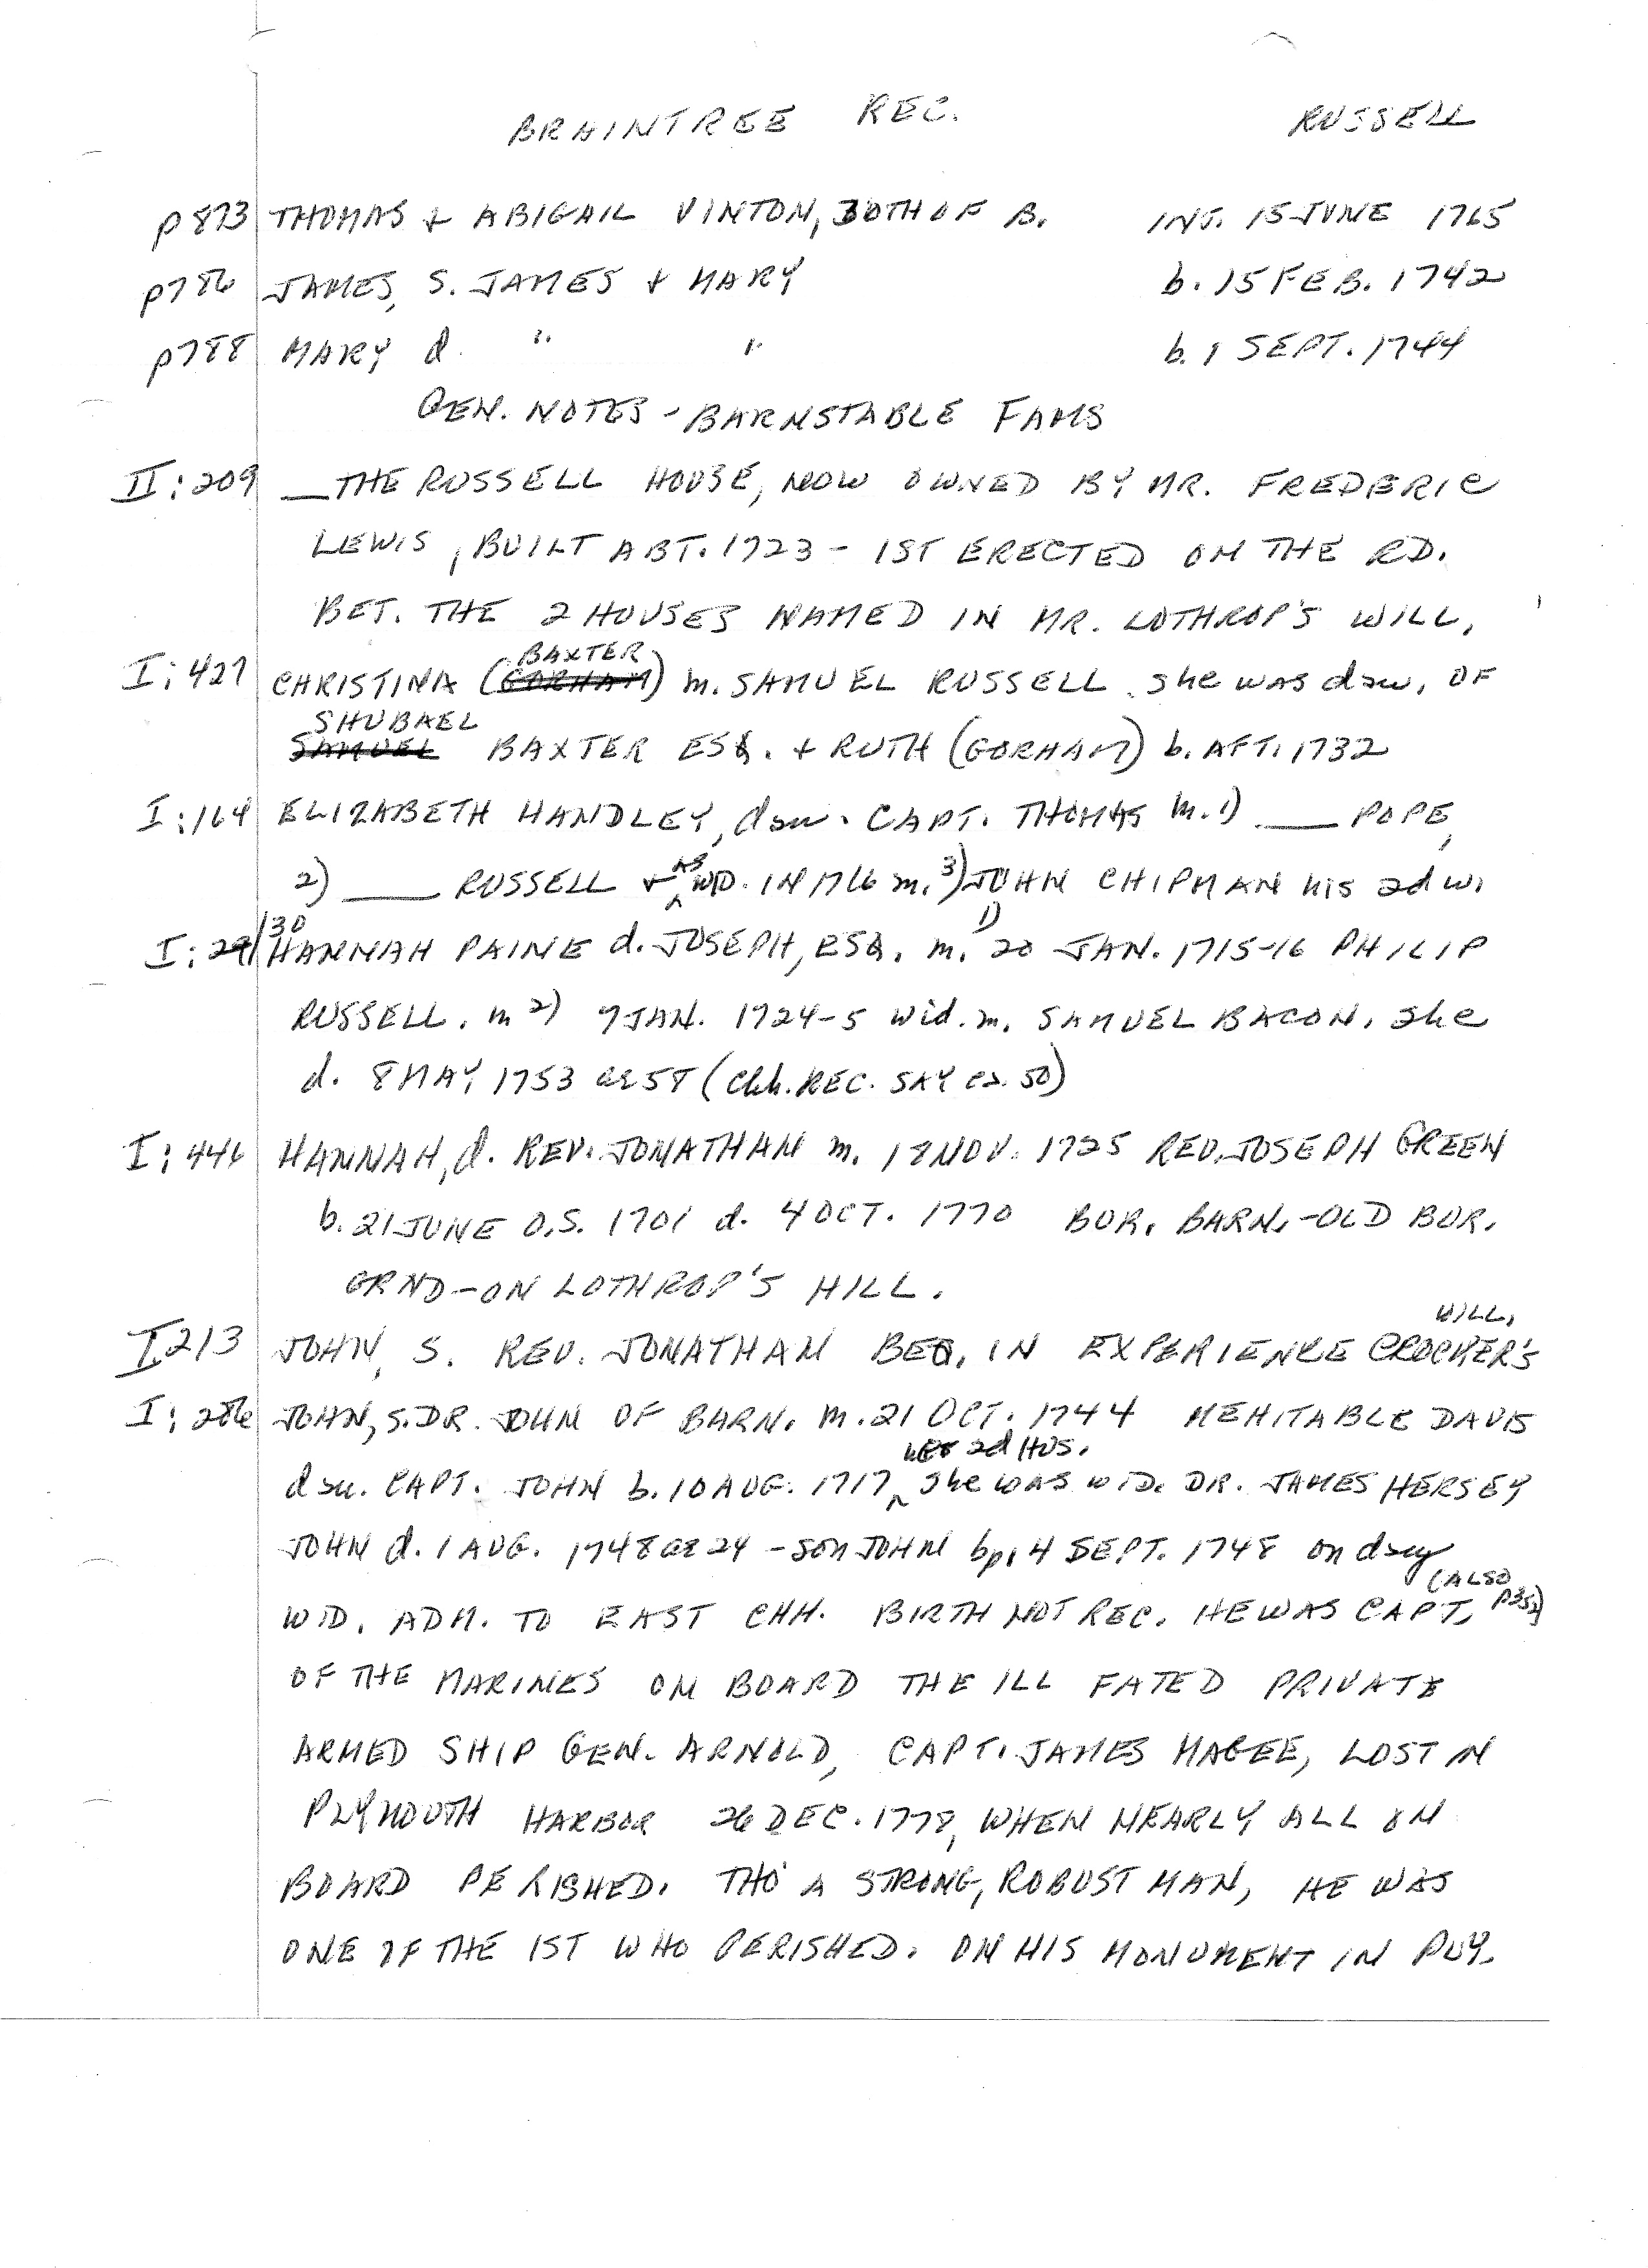 BRAINTREE REC. RUSSELL
p873 THOMAS + ABIGAIL VINTON, BOTH OF B. INT. 15 JUNE 1765
p786 JAMES, S. JAMES + MARY b. 15 FEB. 1742
p788 MARY d. " " b. 1 SEPT. 1744
GEN. NOTES - BARNSTABLE FAMS
II:209 __ THE RUSSELL HOUSE, NOW OWNED BY MR. FREDERIC
LEWIS, BUILT ABT. 1723 - 1ST ERECTED ON THE RD.
BET. THE 2 HOUSES NAMED IN MR. LOTHROP'S WILL,
BAXTER
I:427 CHRISTINA (GORHAM) m. SAMUEL RUSSELL. she was dau. OF
SHUBAEL
SAMUEL BAXTER ESQ. + RUTH (GORHAM) b. AFT. 1732
I:164 ELIZABETH HANDLEY, dau. CAPT. THOMAS m. 1) ___ POPE,
2) ___ RUSSELL + AS WD. IN 1716 m. 3) JOHN CHIPMAN his 2d w.
I:29/130 HANNAH PAINE d. JOSEPH, ESQ. m. 1) 20 JAN. 1715-16 PHILIP
RUSSELL. m 2) 7 JAN. 1724-5 wid. m. SAMUEL BACON. She
d. 8 MAY 1753 ae 58 (Chh. REC. SAY ca. 50)
I:446 HANNAH, d. REV. JONATHAN m. 18 NOV. 1725 REV. JOSEPH GREEN
b. 21 JUNE O.S. 1701 d. 4 OCT. 1770 BUR. BARN. - OLD BUR.
GRND - ON LOTHROP'S HILL.
WILL,
I213 JOHN, S. REV. JONATHAN BEQ. IN EXPERIENCE CROCKER'S
I:286 JOHN, S. DR. JOHN OF BARN. m. 21 OCT. 1744 MEHITABLE DAVIS
her 2d HUS.
dau. CAPT. JOHN b. 10 AUG. 1717, She was WID. DR. JAMES HERSEY
JOHN d. 1 AUG. 1748 ae 24 - son JOHN bp. 4 SEPT. 1748 on day
(ALSO
WID. ADM. TO EAST CHH. BIRTH NOT REC. HE WAS CAPT. p352)
OF THE MARINES ON BOARD THE ILL FATED PRIVATE
ARMED SHIP GEN. ARNOLD, CAPT. JAMES MAGEE, LOST IN
PLYMOUTH HARBOR 26 DEC. 1778, WHEN NEARLY ALL ON
BOARD PERISHED. THO' A STRONG, ROBUST MAN, HE WAS
ONE OF THE 1ST WHO PERISHED. ON HIS MONUMENT IN PLY.